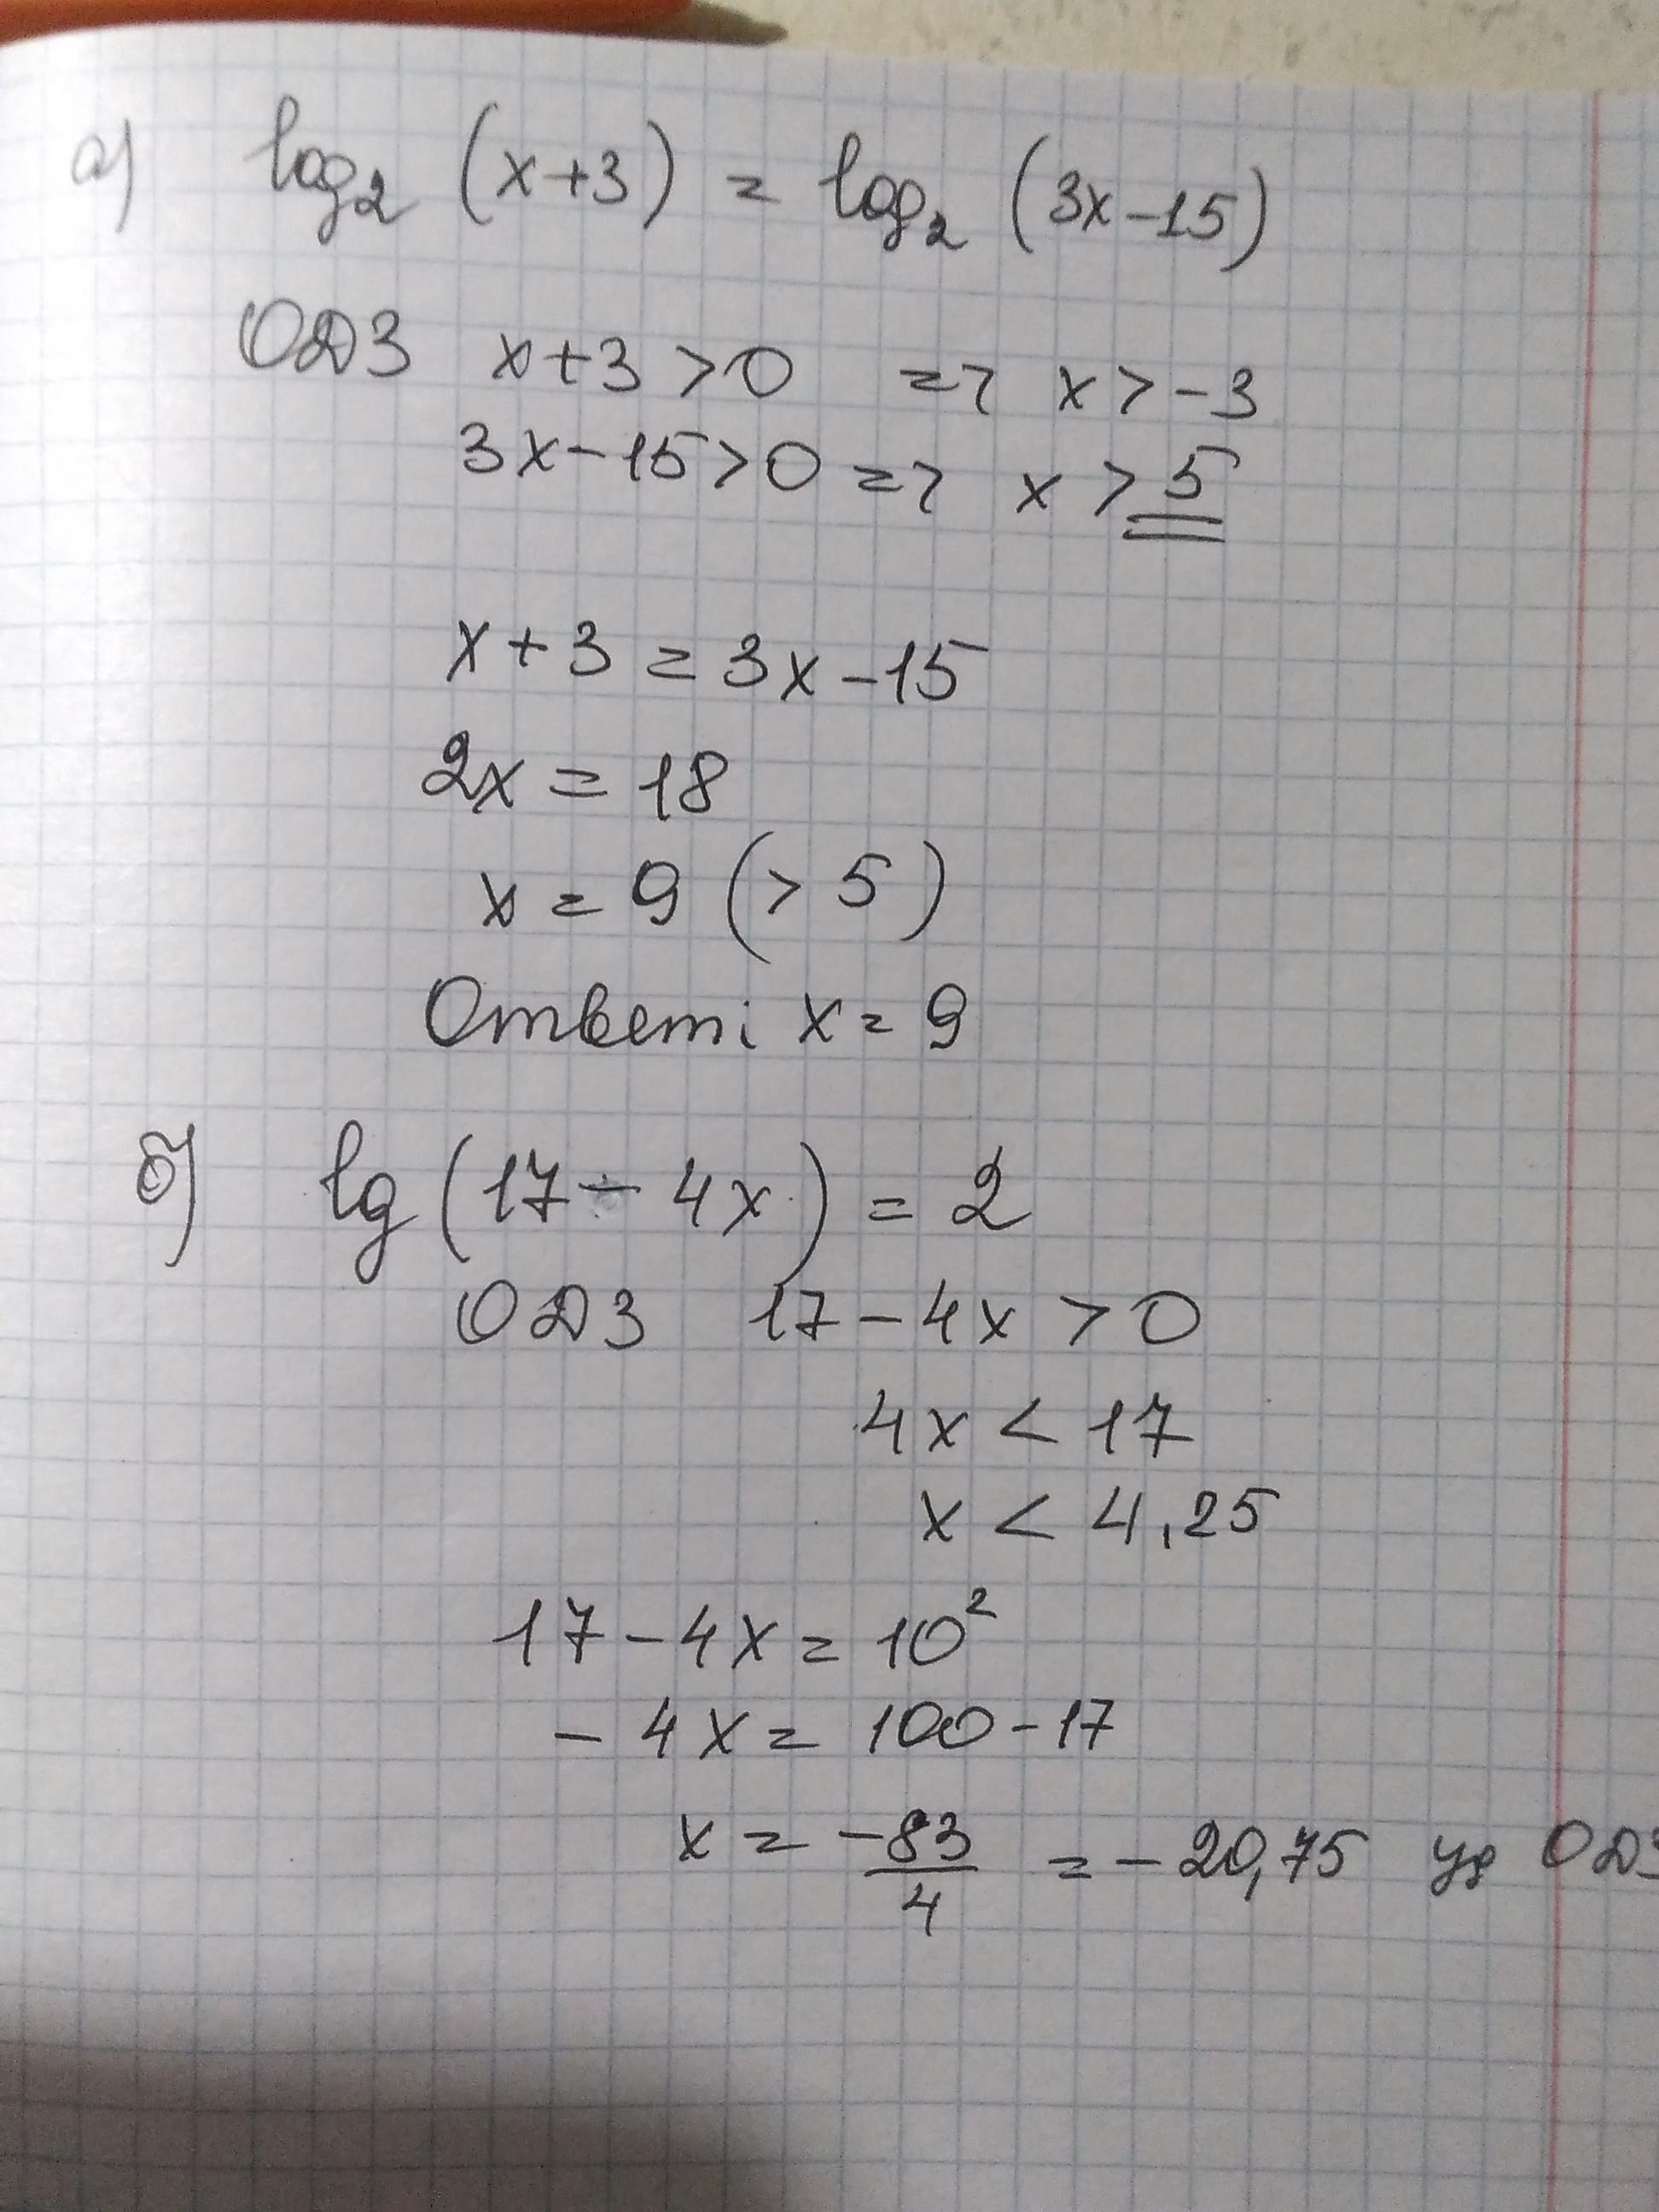 а) log₂ (x+3) = log₂ (3x-15)
ОДЗ x+3 >0 => x > -3
3x-15>0 => x > 5
x+3 = 3x-15
2x = 18
x = 9 (> 5)
Ответ: x = 9
б) lg (17 - 4x) = 2
ОДЗ 17-4x > 0
4x < 17
x < 4,25
17-4x = 10²
-4x = 100-17
x = -83/4 = -20,75 уд ОДЗ